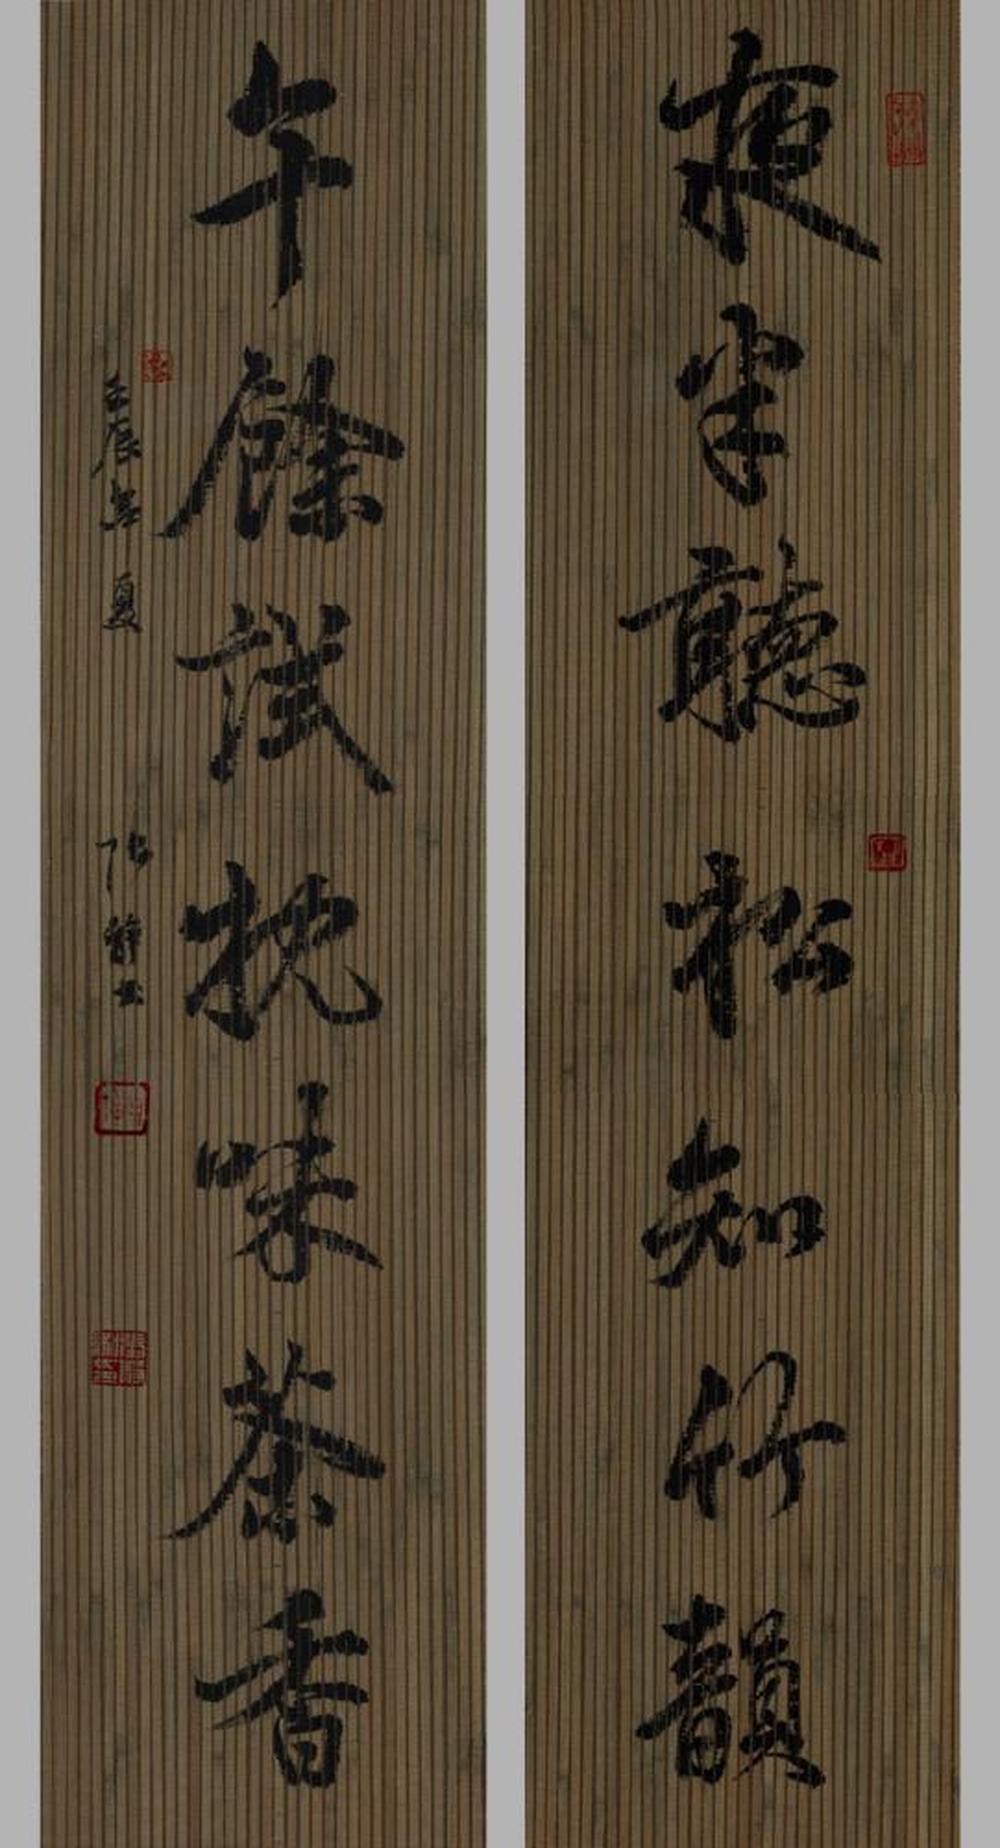 夜半聽松知竹韻
午餘試枕味茶香
壬辰年夏